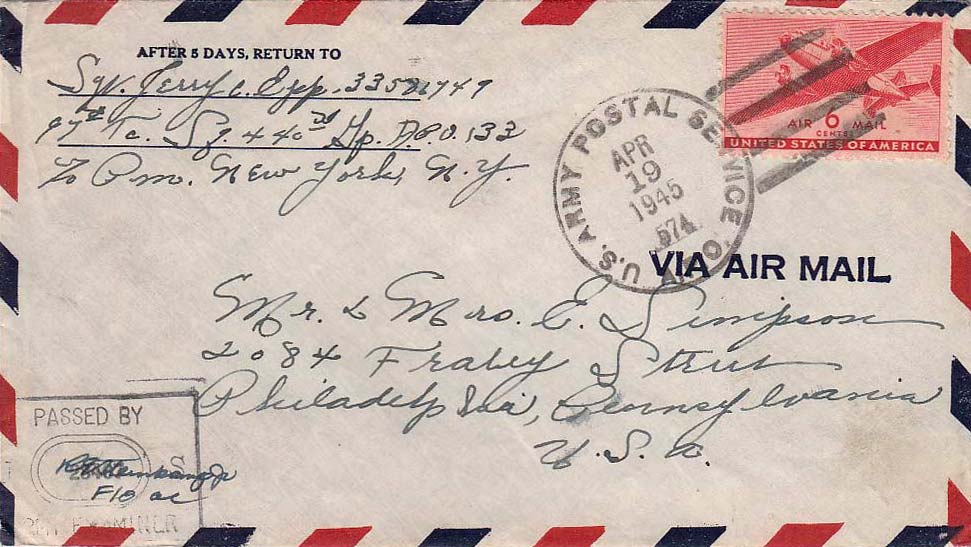 AFTER 5 DAYS, RETURN TO
Sgt. Jerry C. Epp. 33521749
97th T.C. Sq. 440th Gp. A.P.O. 133
℅ P.m. New York, N.Y.
U.S. ARMY POSTAL SERVICE
APR
19
1945
574
AIR 6 MAIL
CENTS
UNITED STATES OF AMERICA
VIA AIR MAIL
Mr. & Mrs. E. Simpson
2084 Fraley Street
Philadelphia, Pennsylvania
U.S.A.
PASSED BY
S
F/O AC
EXAMINER